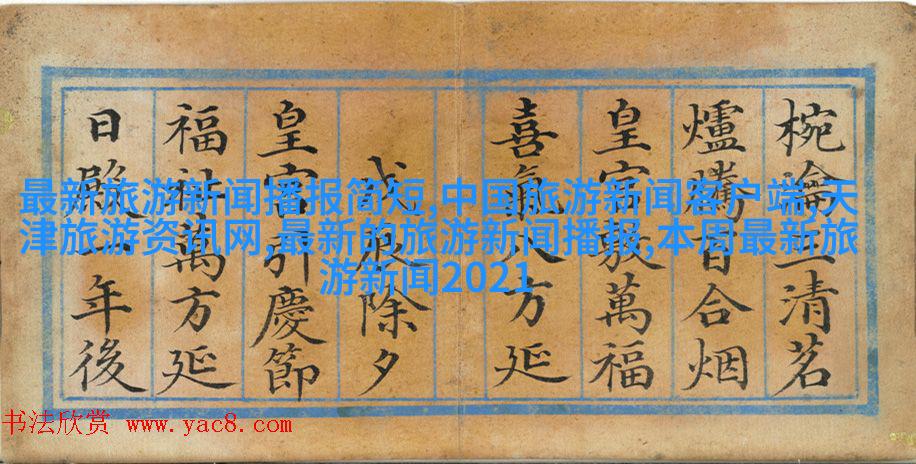 椀瀹三清茗
爐騰百合烟
皇宮敷萬福
喜氣八方延
戊辰除夕
皇宮引慶節
福祉萬方延
日一年後
最新旅游新闻播报简短,中国旅游新闻客户端,天
津旅游资讯网,最新的旅游新闻播报,本周最新旅
游新闻2021
书法欣赏 www.yac8.com